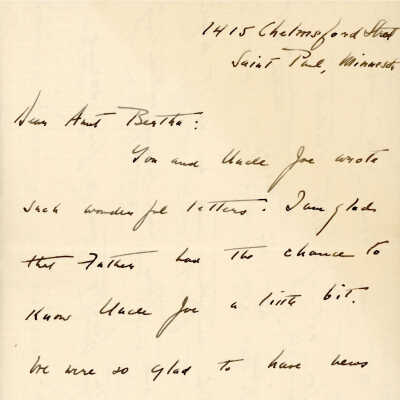 1415 Chelmsford Street
Saint Paul, Minnesota
Dear Aunt Bertha:
You and Uncle Joe wrote
such wonderful letters. I am glad
that Father had the chance to
know Uncle Joe a little bit.
We were so glad to have news